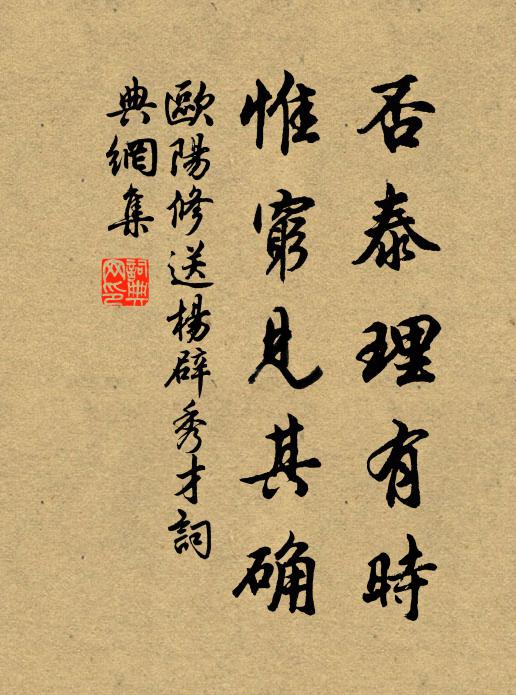 否泰理有時
惟窮見其确
歐陽修送楊辟秀才詞
典網集
詞典
网印